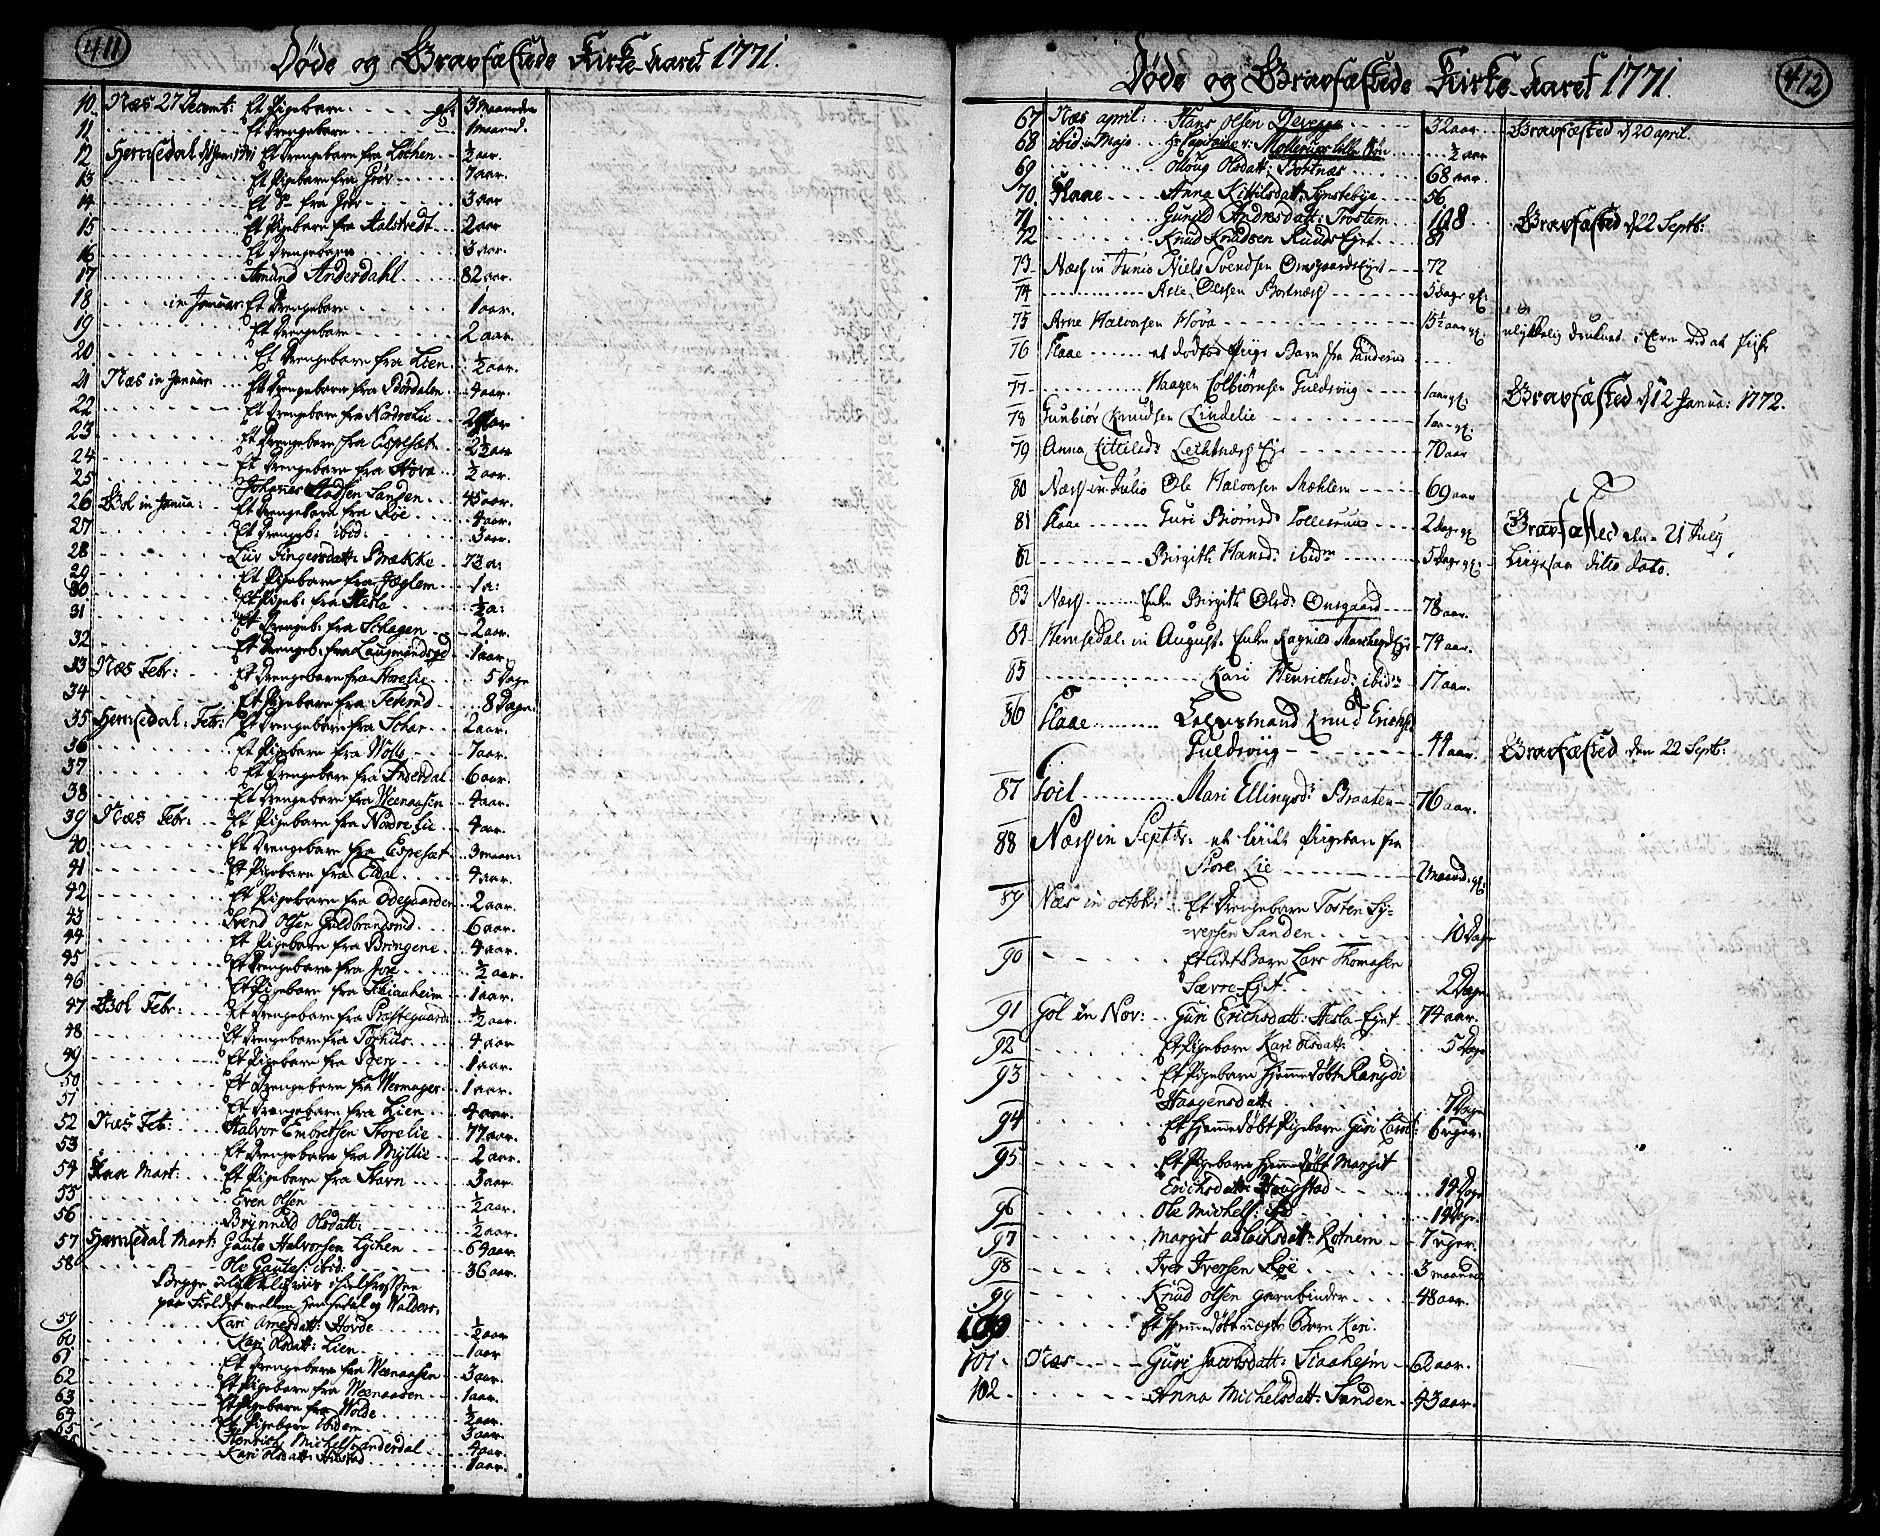 411
Døde og Gravfæstede Kirke-Aaret 1771.
10. Næs 27 Decemb: Et Pigebarn 3 maaneder
11 Et Drengebarn 1 maaned.
12 Hemsedal Et Drengebarn fra Løkhen ½ aar.
13 Et Pigebarn fra Grøv 7 aar.
14 Et D° fra Grøv 3 aar
15 Et Pigebarn fra Aalstvedt 2 aar
16 Et Drengebarn 3 aar.
17 Amund Anderdahl 82 aar.
18 in Januar: Et Drengebarn 1 aar.
19 Et Drengebarn 2 aar.
20 Et Drengebarn fra Lien ½ aar.
21 Næs in Januar Et Drengebarn fra Børdalen 4 aar.
22 Et Drengebarn fra Nordrelie
23 Et Drengebarn fra Espeset 2½ aar
24 Et Drengebarn fra Hova ½ aar.
25 Johannes Sanden 45 aar.
26 Gol in Janua: Et Drengebarn fra Røe 4 aar.
27 Et Drengeb: ibid: 3 aar.
28 Liv Fingersdatt: Brække 73 a:
29 Et Pigebarn fra Hæglem 1 a:
30 Et Pigeb: fra Hesla ½ a:
31 Et Drengeb: fra Schagen 2 aar.
32 Et Drengeb: fra 1 aar
33 Næs Febr: Et Drengebarn fra Storelie 5 Dage
34 Et Pigebarn fra 8 Dage.
35 Hemsedal: Febr: Et Drengebarn fra 2 aar.
36 Et Pigebarn fra Wolle 7 aar.
37 Et Drengebarn fra Anderdal 6 aar.
38 Et Drengebarn fra Weenaasen 4 aar.
39 Næs Febr: Et Pigebarn fra Nordrelie 4 aar.
40 Et Drengebarn fra Espeset 3 maan:
41 Et Pigebarn fra Eidal 4 aar.
42 Et Pigebarn fra Ødegaarden 2 aar.
43 Svend Olsen Guldbransrud 6 aar.
44 Et Pigebarn fra Bringene 4 aar.
45 Et Drengebarn fra ½ aar.
46 Et Pigebarn fra 1 aar.
47 Gol Febr: Et Drengebarn fra Præstegaard ½ aar.
48 Et Drengebarn fra Torhus 4 aar
49 Et Pigebarn fra Berg 1 aar.
50 Et Drengebarn fra Wermager 1 aar.
51 Et Drengebarn fra Lien 4 aar.
52 Næs Feb: Halvor Embretsen Storelie 77 aar.
53 Et Drengebarn fra Myllie 2 aar.
54 Flaa Mart: Et Pigebarn fra Stavn 3 aar.
55 Even Olsen ½ aar.
56 Brynnild Olsdatt: ½ aar.
57 Hemsedal Mart: Gaute Halvorsen Lychen 64 aar.
58 Ole Gautes: ibid: 36 aar.
Begge
paa Fieldet mellem Hemsedal og Walders.
59 Kari Arnesdatt: Hovde ½ aar
60 Kari Olsdatt: Lien 1 aar
61 Et Drengebarn fra Weenaasen 3 aar.
62 Et Pigebarn fra Weenaasen 1 aar.
63 Et Pigebarn fra Wolde ½ aar.
64 Et Pigebarn Ibidem 3 aar.
65 Henrich Michelss: Anderdal 4 aar.
Kari Olsdatt: 1 aar.
412
Døde og Gravfæstede Kirke-Aaret 1771.
67 Næs april: Hans Olsen 32 aar. Gravfæsted d 20 april.
68 ibid: in Majo ½ aar
69 Olsdatt: Bortnæs 68 aar.
70. Flaae Anna Kittilsdatt: 56
71 Gunild Andresdatt: Trostem 108 Gravfæsted d 22 Septb:
72 Knud Knudsen Ruuds Ejet 81
73 Næss in Junio Niels Svendsen Omsgaards Ejet 72
74 Asle Olssen Bortnæss 5 Dage gl:
75 Arne Halvorsen Hova 15½ aar gl: ulykkelig druknet i Elven ved at fiske
76 Flaae et dødfød Piige Barn fra Sanderud
77 Haagen Colbiørnsen Guldsviig 1 aar gl: Gravfæsted d 12 Janua: 1772.
78 Gunbiør Knudsen Lindelie 1 aar gl:
79 Anna Kittilsd: Eje 70 aar
80 Næss in Julio Ole Halvorsen Mæhlem 69 aar
81 Flaae Guri Biørnsd: Tollefsrud 2 Dage gl Gravfæsted den 21 July
82 Birgith Hansd: ibidm 5 Dage gl: Ligesaa ditto dato.
83 Næss Enke Birgith Olsd: Omsgaard 78 aar.
84 Hemsedal: in August. Enke Ragnild Eje 74 aar.
85 Kari Henrichsd: ibidm 17 aar.
86 Flaae Knud Erichs:
Guldsviig 44 aar. Gravfæsted den 22 Septb:
87 Goel Mari Ellingsd: Braaten 76 aar.
88 Næss in Septbr: et lidet Piigebarn fra
Store Lie 2 maaned: gl:
89 Næs in octobr: Et Drengebarn Tosten Sy-
versen Sanden 10 Dage
90 Et lidet Barn Lars Thomasen
Sævre-Ejet 2 Dage
91 Gol in Nov: Guri Erichsdatt: Hesla-Ejet 74 aar.
92 Et Pigebarn Kari Olsdatt: 5 Dage
93 Et Pigebarn hjemmedøbt Rangdi
Haagensdatt: 7 Dage
94 Et hjemmedøbt Pigebarn Guri Larsd: 6 uger.
95 Et Pigebarn hjemmedøbt Margit
Erichsdatt: Haugstad 14 Dage
96 Ole Michels: 14 Dage
97 Margit Aslachsdatt: Rotnem 7 uger.
98 Iver Iversen Røe 3 maaned
99 Knud Olsen garnbinder 48 aar.
100 Et hjemmedøbt Barn Kari.
101 Næs Guri Jacobsdatt: Siaaheim 6 aar.
102 Anna Michelsdatt: Sanden 43 aar.